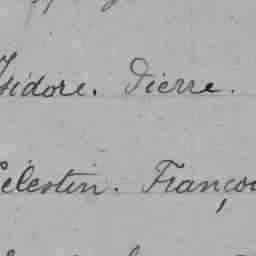 Isidore. Pierre.
Célestin. Françoi